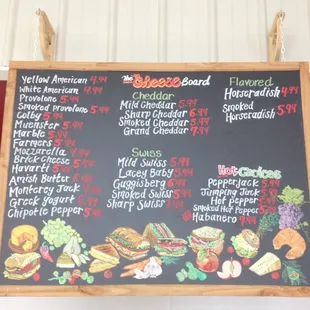 The Cheese Board
Yellow American 4.99
White American 4.99
Provolone 5.99
Smoked Provolone 5.99
Colby 5.99
Muenster 5.99
Marble 5.99
Farmers 5.99
Mozzarella 4.99
Brick Cheese 5.99
Havarti 5.99
Amish Butter 5.99
Monterey Jack
Greek Yogurt 6.99
Chipotle Pepper 5.99
Cheddar
Mild Cheddar 5.99
Sharp Cheddar 6.99
Smoked Cheddar 5.99
Grand Cheddar 7.99
Swiss
Mild Swiss
Lacey Baby
Guggisberg
Smoked Swiss
Sharp Swiss
Flavored
Horseradish 4.99
Smoked
Horseradish 5.99
Hot Choices
Pepperjack
Jumping Jack
Hot Pepper
Smoked Hot Pepper
Habanero